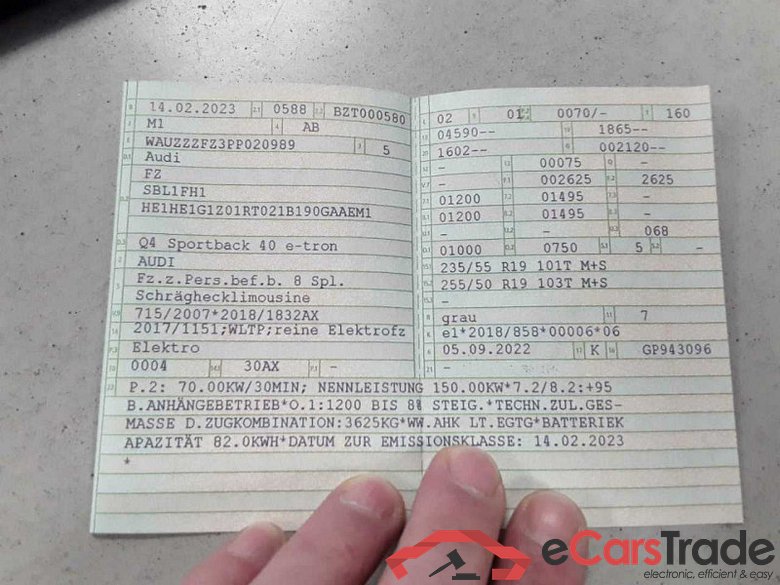 14.02.2023 0588 BZT000580
M1 AB
WAUZZZFZ3PP020989 5
Audi
FZ
SBL1FH1
HE1HE1G1Z01RT021B190GAAEM1
Q4 Sportback 40 e-tron
AUDI
Fz.z.Pers.bef.b. 8 Spl.
Schräghecklimousine
715/2007*2018/1832AX
2017/1151;WLTP;reine Elektrofz
Elektro
0004 30AX -
02 01 0070/- 160
04590-- 1865--
1602-- 002120--
- 00075 -
- 002625 2625
01200 01495 -
01200 01495 -
- - 068
01000 0750 5 -
235/55 R19 101T M+S
255/50 R19 103T M+S
-
grau 7
e1*2018/858*00006*06
05.09.2022 K GP943096
-
P.2: 70.00KW/30MIN; NENNLEISTUNG 150.00KW*7.2/8.2:+95
B.ANHÄNGEBETRIEB*O.1:1200 BIS 8% STEIG.*TECHN.ZUL.GES-
MASSE D.ZUGKOMBINATION:3625KG*WW.AHK LT.EGTG*BATTERIEK
APAZITÄT 82.0KWH*DATUM ZUR EMISSIONSKLASSE: 14.02.2023
*
eCarsTrade
electronic, efficient & easy